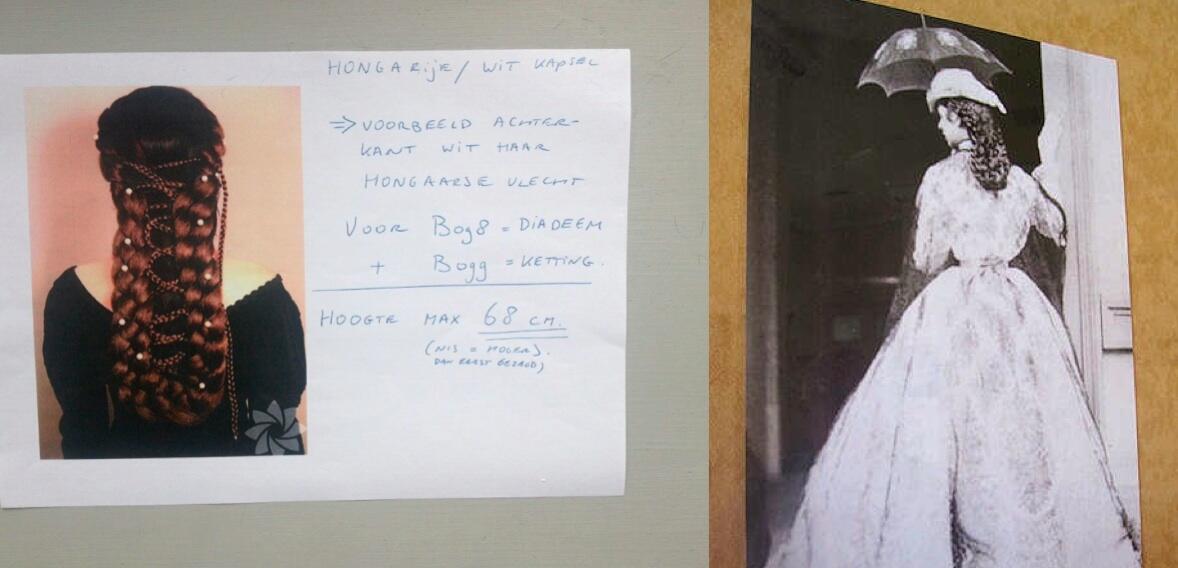 HONGARIJE / WIT KAPSEL
⇒ VOORBEELD ACHTER-
KANT WIT HAAR
HONGAARSE VLECHT
VOOR Bog8 = DIADEEM
+ Bogg = KETTING.
HOOGTE MAX 68 CM.
(NIS = HOGER).
DAN EERST GEZEGD)